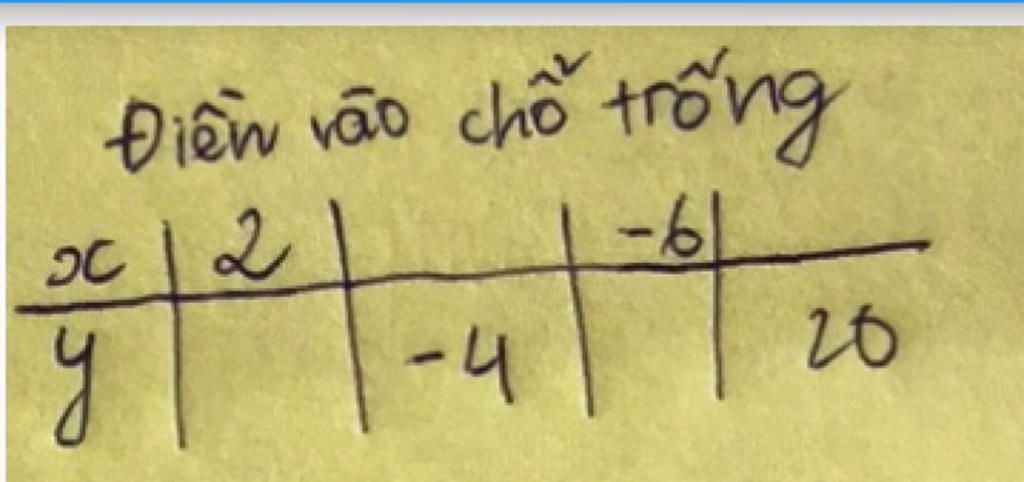 Điền vào chỗ trống
x | 2 | | -6 |
y | | -4 | | 20